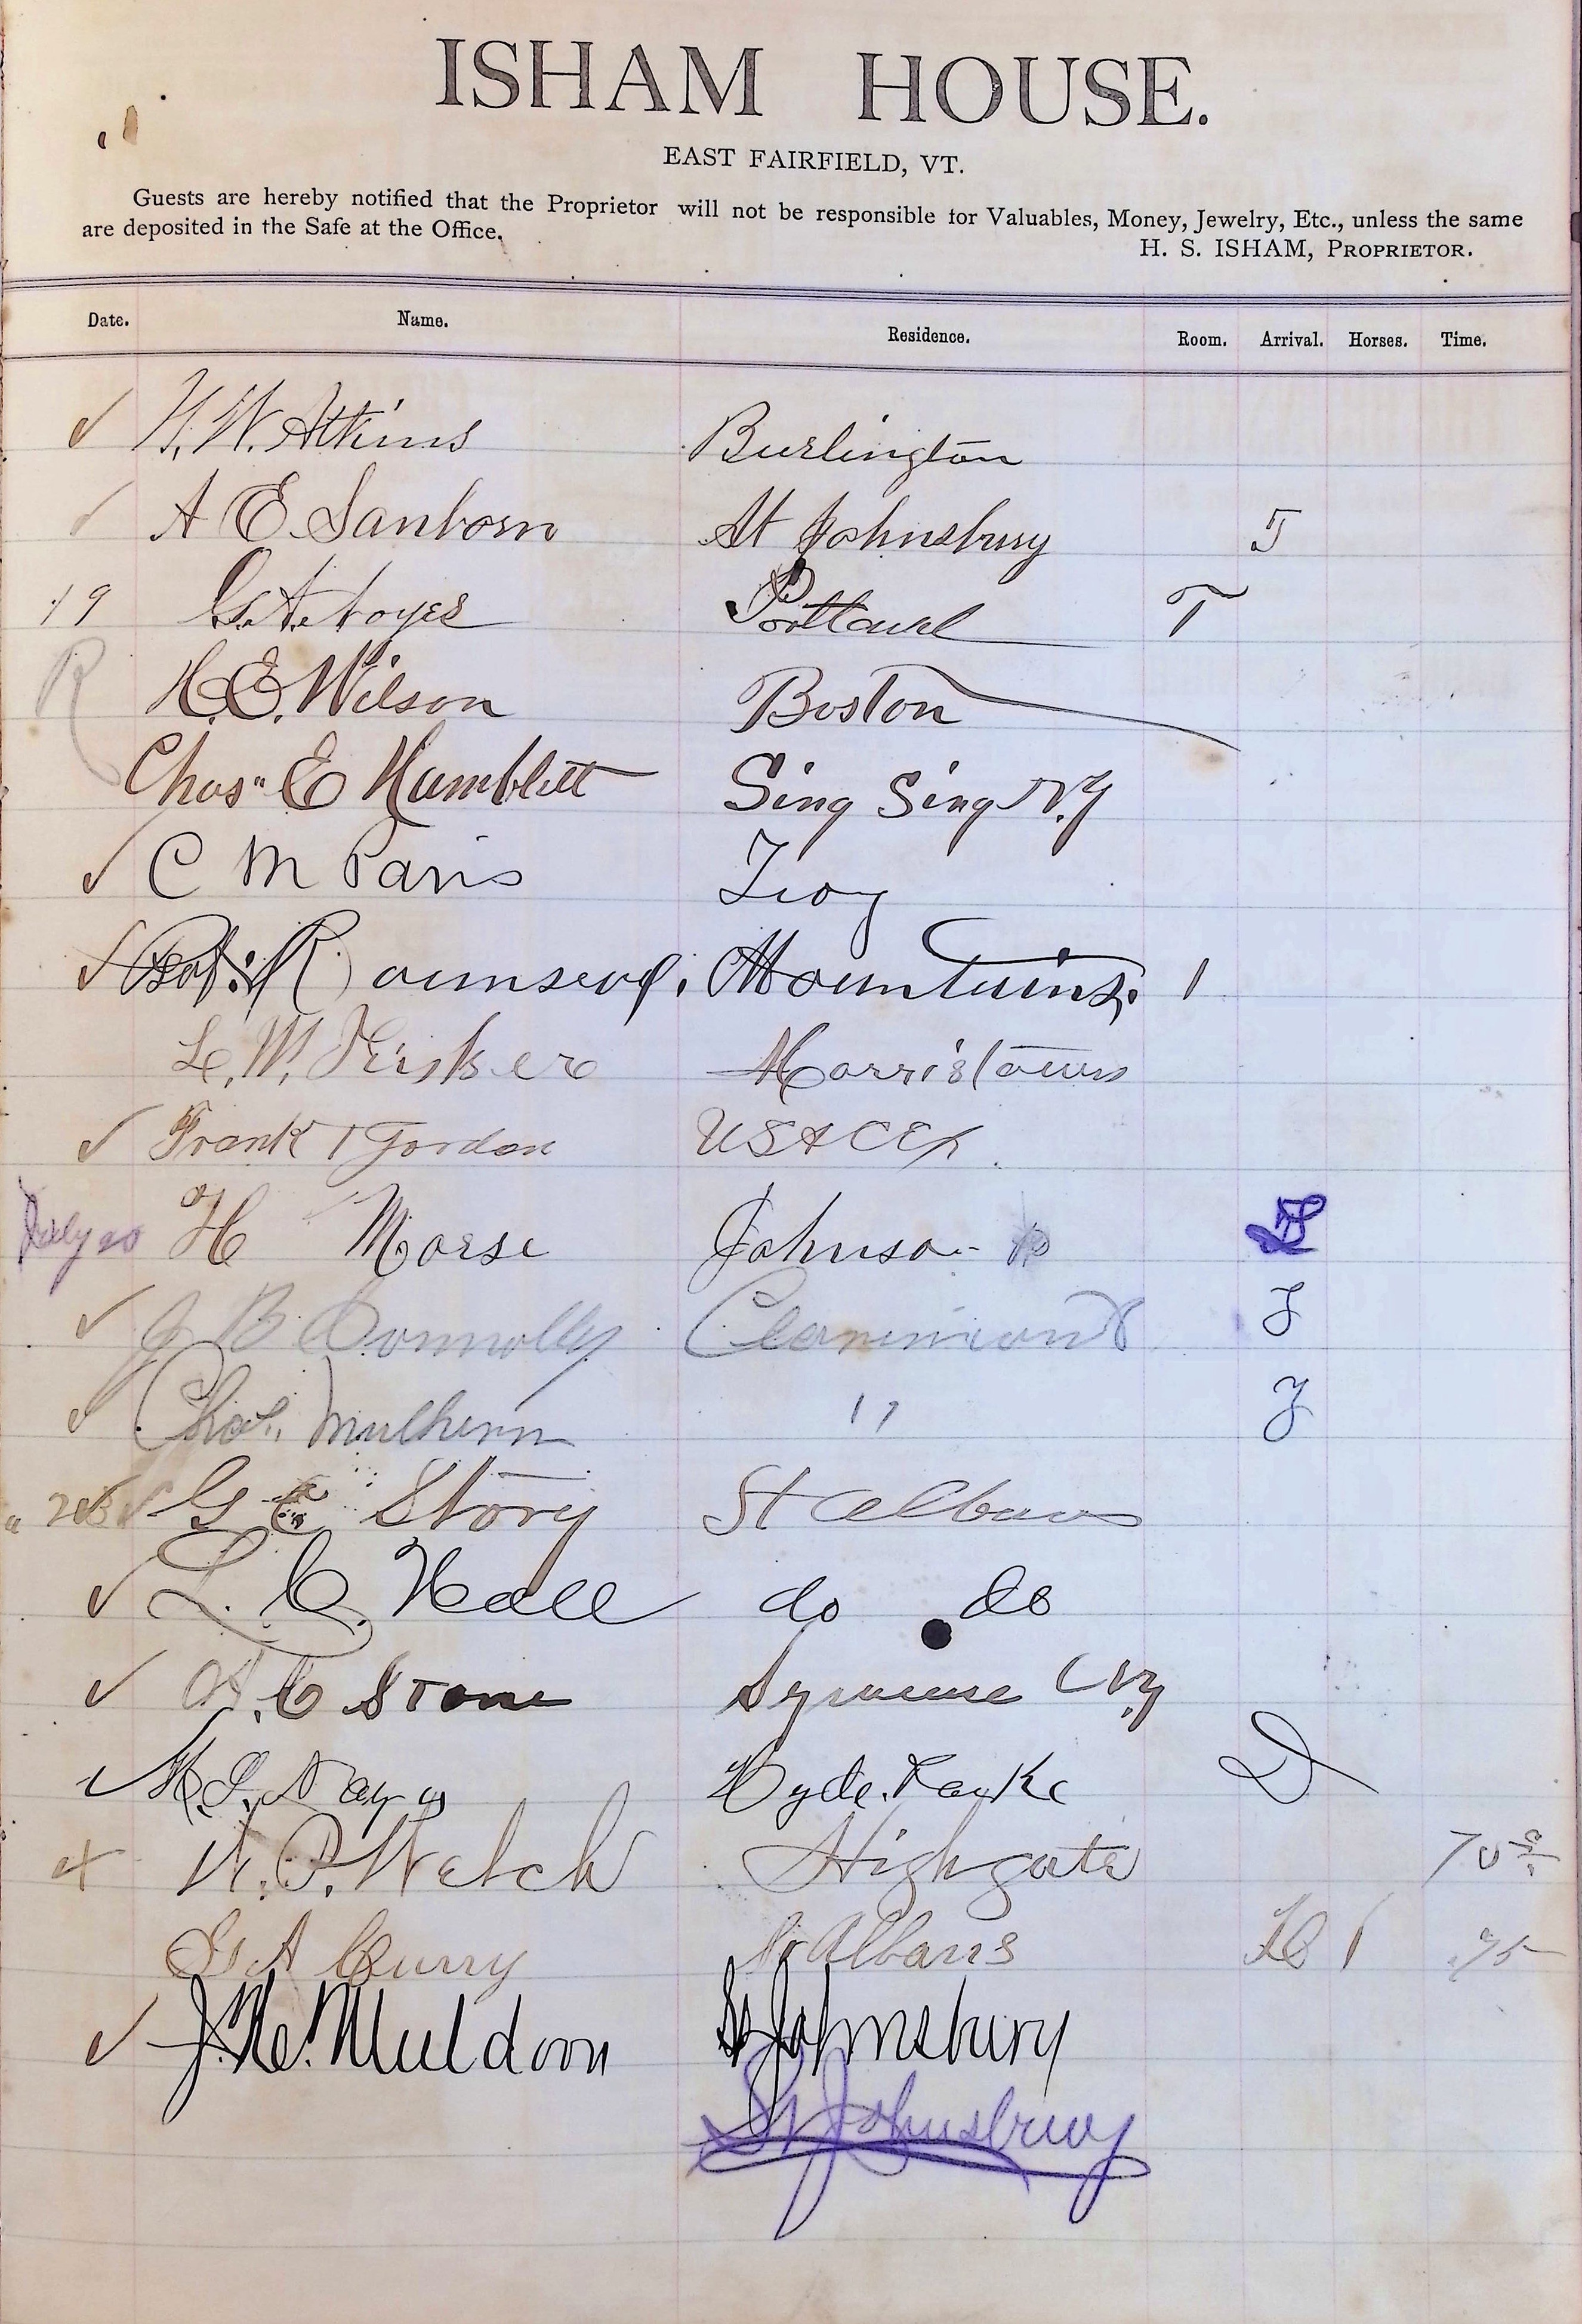 ISHAM HOUSE.
EAST FAIRFIELD, VT.
Guests are hereby notified that the Proprietor will not be responsible for Valuables, Money, Jewelry, Etc., unless the same
are deposited in the Safe at the Office.
H. S. ISHAM, PROPRIETOR.
Date. Name. Residence. Room. Arrival. Horses. Time.
✓ H. W. Atkins Burlington
✓ A E Sanborn St Johnsbury T
19 G. A. Noyes Portland T
R H. E. Wilson Boston
Chas" E Hamblett Sing Sing N.Y
✓ C M Paris Troy
✓ Prof: R Mountains. 1
L. W. Morristown
✓ Frank Gordon
July 20 H Morse Johnson
✓ J B Connolly
✓ Chas. Mulhern "
" ✓ G E Story St Albans
✓ L. C. Hall do do
✓ A. C Stone Syracuse N.Y
✓ Hyde Park D
W. P. Welch Highgate
G A Curry St Albans 1 75
✓ J. Mc. Muldoon St Johnsbury
St Johnsbury